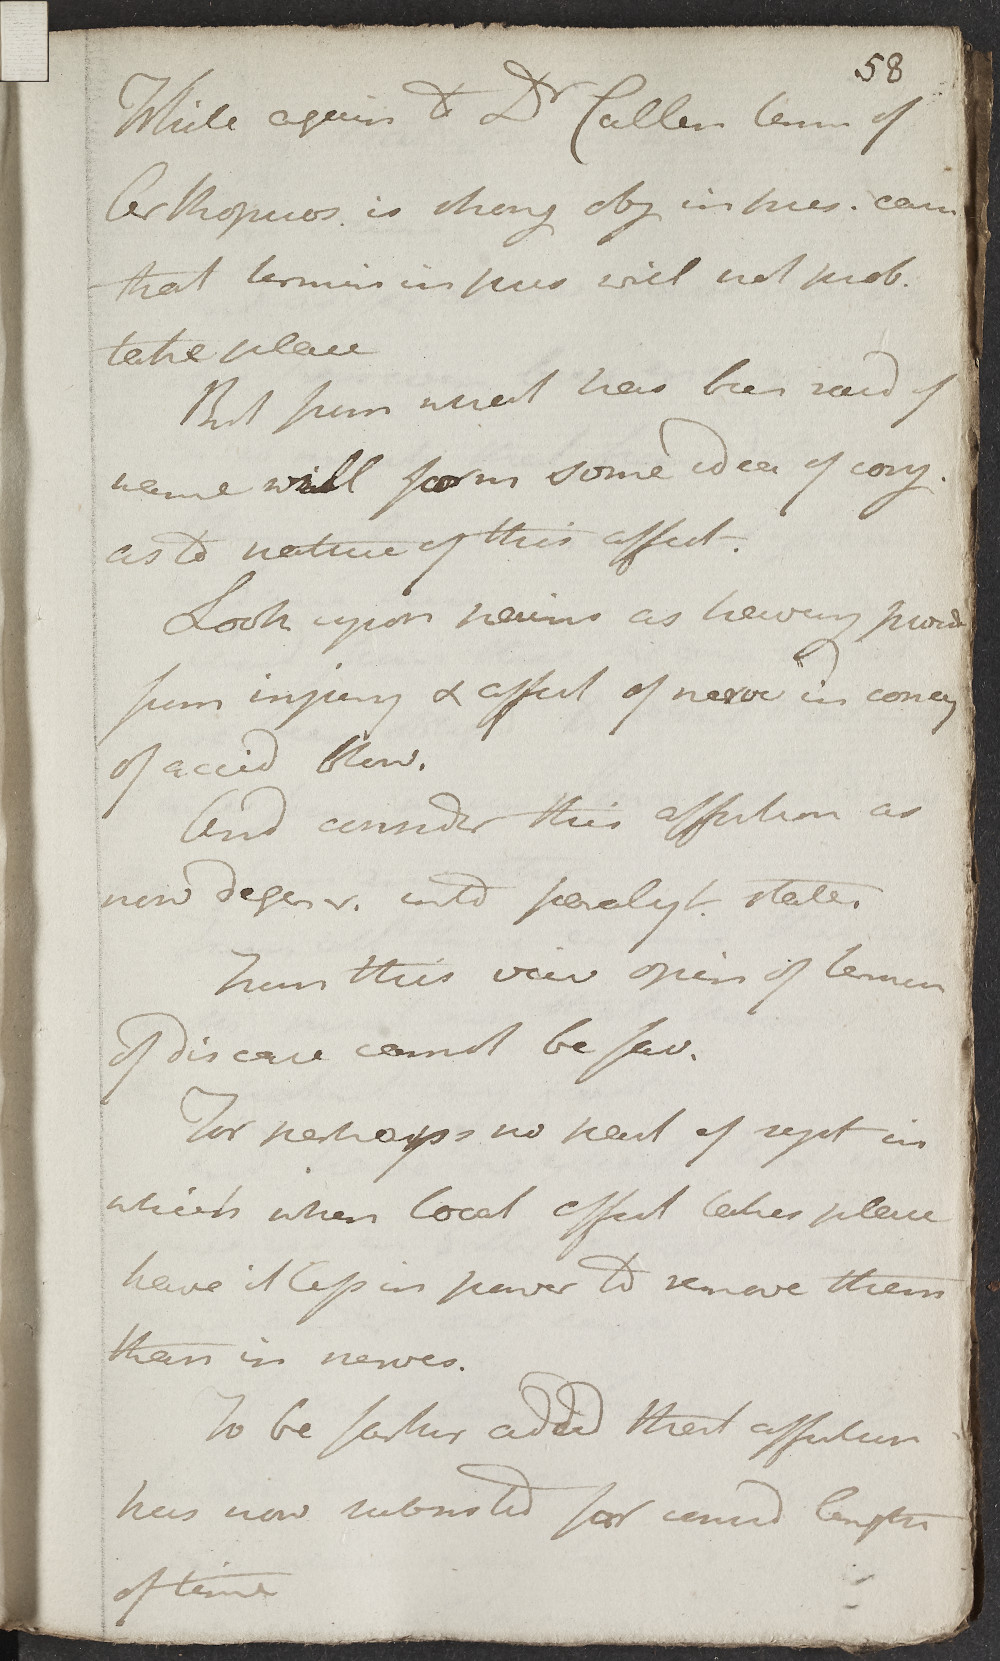 58
While again to Dr Cullen term of
Arthropuos. is strong obj in pres. case
that termin in pus will not prob.
take place
But from what has been said of
name will form some idea of conj.
as to nature of this affect.
Look upon pains as having proceed
from injury & affect of nerve in conseq
of accid blow.
And consider this affection as
now degener. into paralyt. state.
From this view opin of termin
of disease cannot be fav.
For perhaps no part of syst in
which when local affect takes place
have it less in power to remove them
than in nerves.
To be farther added that affection
has now subsisted for consid length
of time